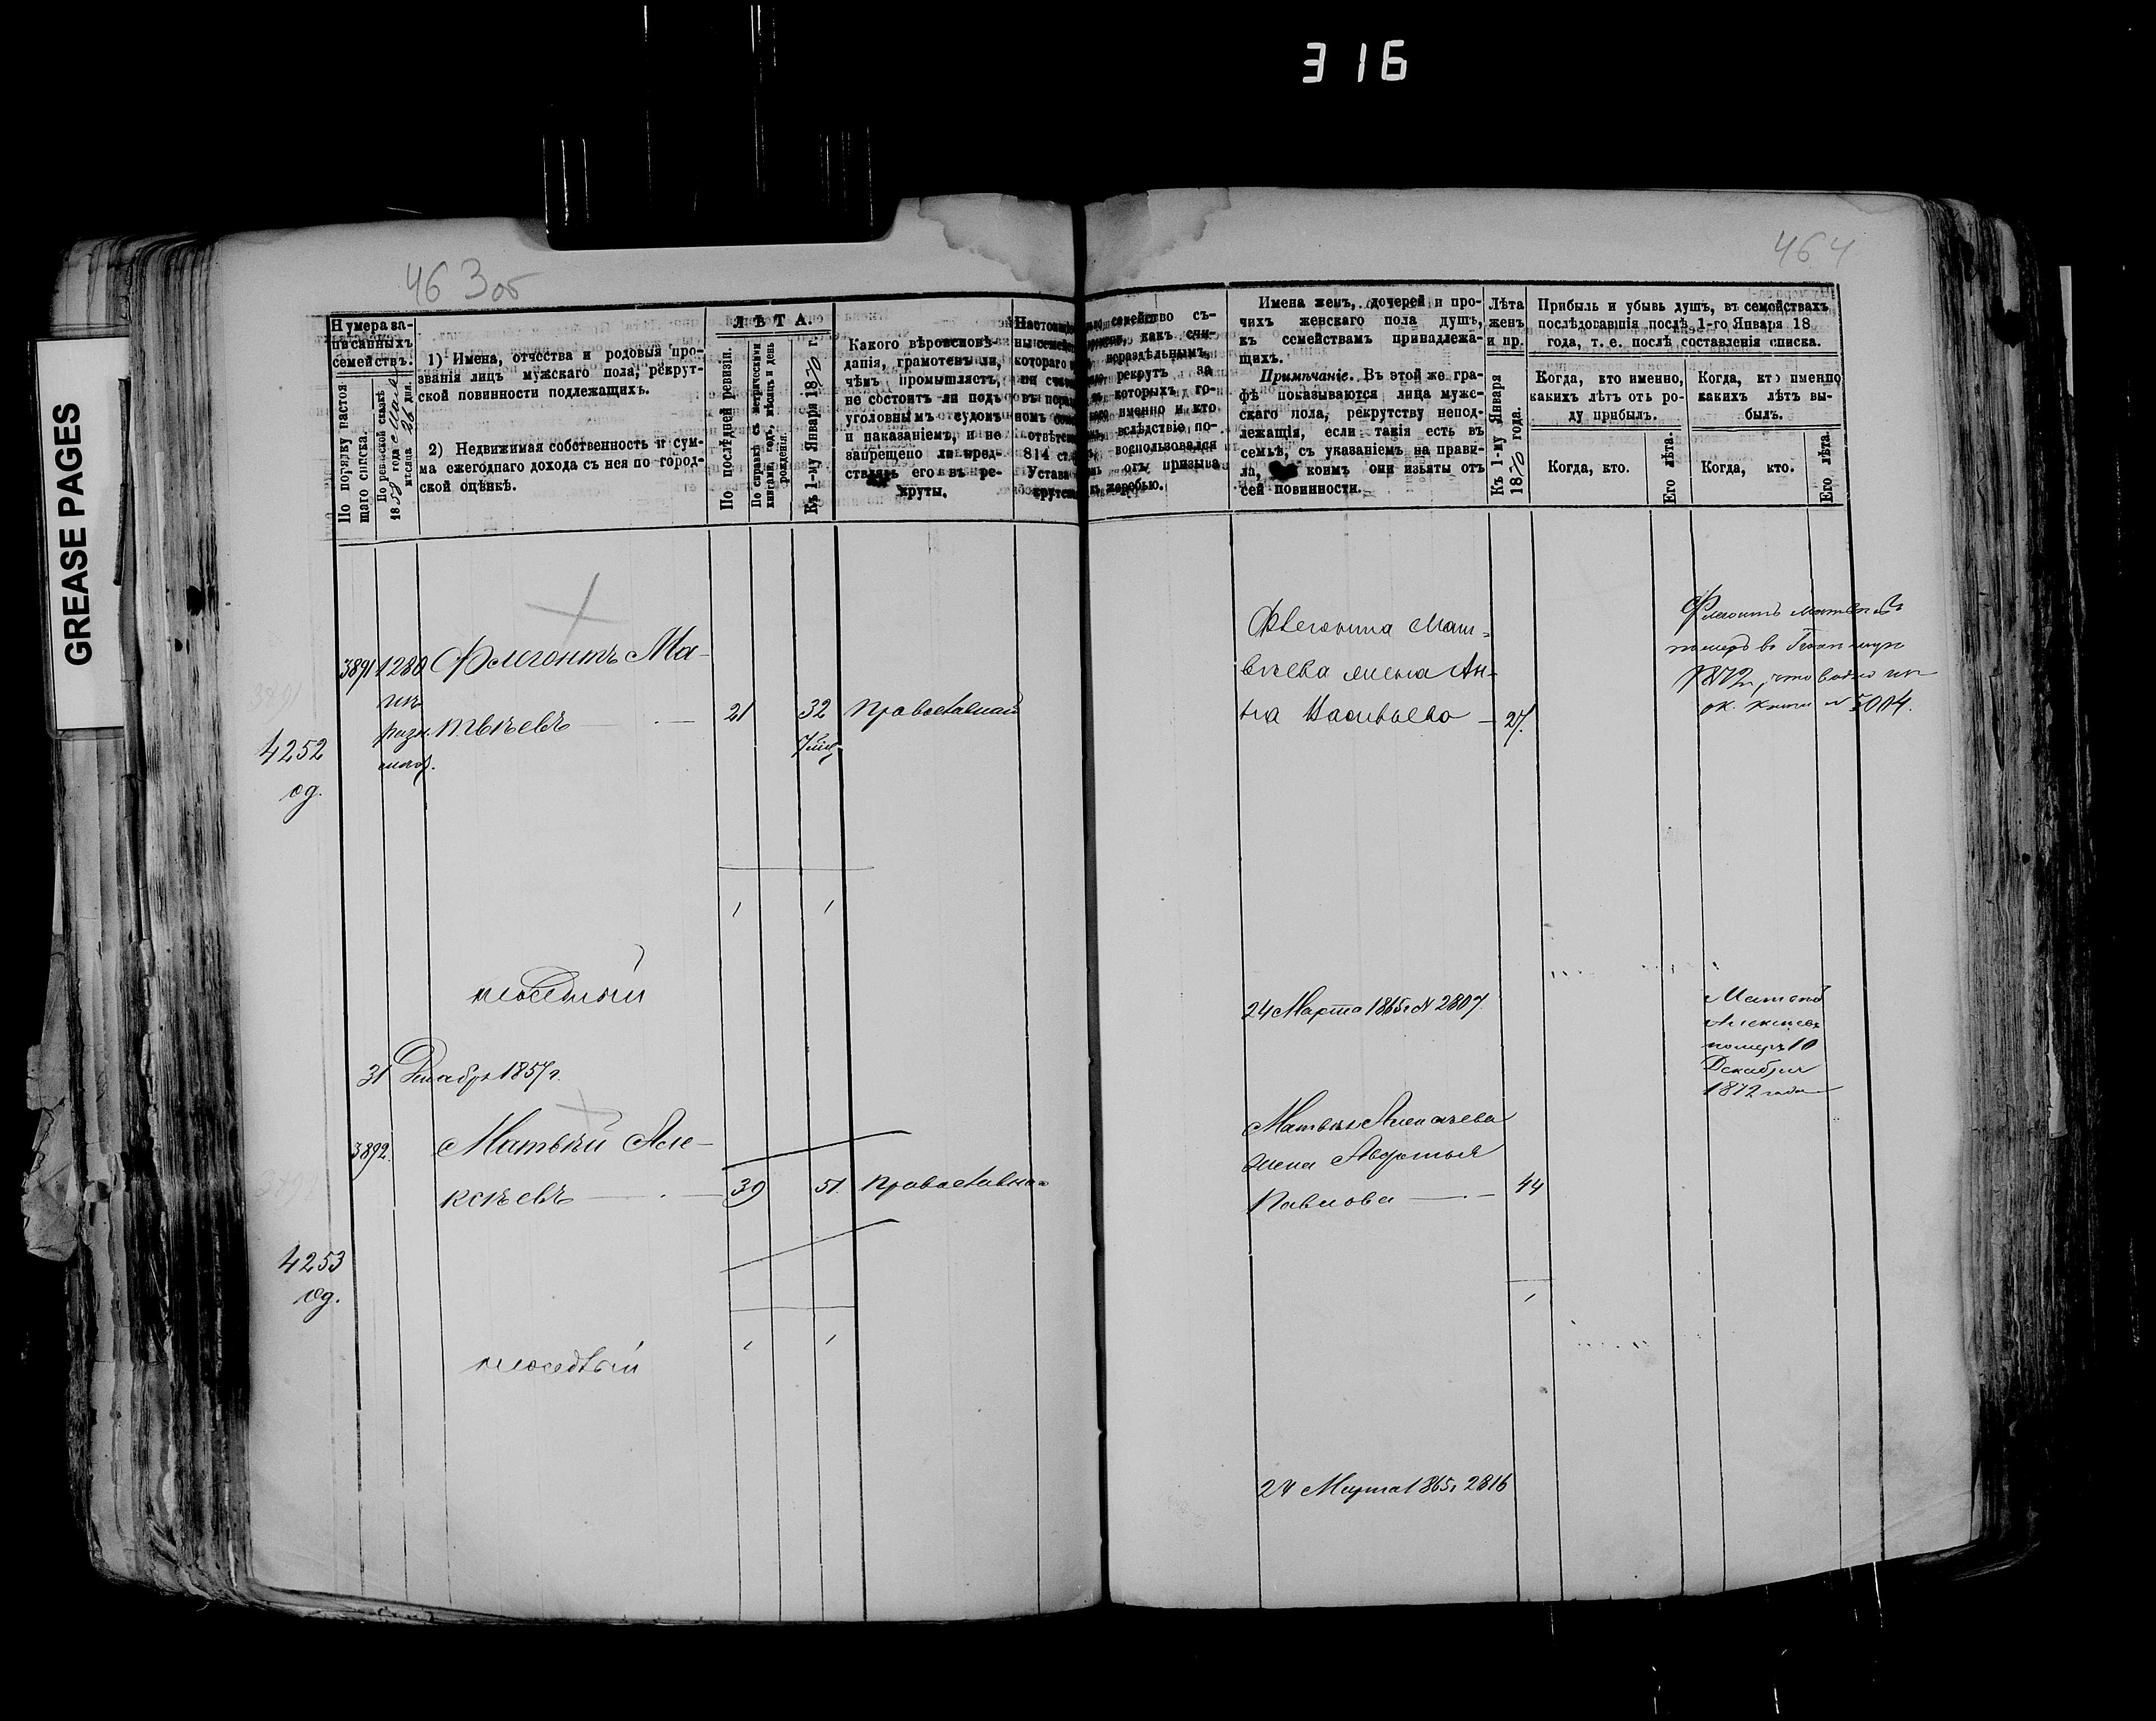 316
GREASE PAGES
463об
464
Нумера за-
писанныхъ
семействъ.
По порядку настоя-
щаго списка.
По ревизской сказкѣ
1858 года
мѣсяца 26 дня.
1) Имена, отчества и родовыя про-
званія лицъ мужскаго пола, рекрут-
ской повинности подлежащихъ.
2) Недвижимая собственность и сум-
ма ежегоднаго дохода съ нея по город-
ской оцѣнкѣ.
ЛѢТА.
По послѣдней ревизіи.
По справкѣ съ метрическими
книгами, годъ, мѣсяцъ и день
рожденія.
Къ 1-му Января 1870 г.
Какого вѣроисповѣ-
данія, грамотенъ ли,
чѣмъ промышляетъ,
не состоитъ ли подъ
уголовнымъ судомъ
и наказаніемъ, и не
запрещено ли пред-
ставлять его въ ре-
круты.
семейство съ-
какъ счи-
нераздѣльнымъ,
рекрутъ за
которыхъ го-
именно и кто
вслѣдствіе по-
воспользовался
отъ призыва
къ жеребью.
814 ст.
Устава
Имена женъ, дочерей и про-
чихъ женскаго пола душъ,
къ семействамъ принадлежа-
щихъ.
Примѣчаніе. Въ этой же гра-
фѣ показываются лица муже-
скаго пола, рекрутству непод-
лежащія, если такія есть въ
семьѣ, съ указаніемъ на прави-
ла, коимъ они изъяты отъ
сей повинности.
Лѣта
женъ
и пр.
Къ 1-му Января
1870 года.
Прибыль и убыль душъ, въ семействахъ
послѣдовавшія послѣ 1-го Января 18
года, т. е. послѣ составленія списка.
Когда, кто именно,
какихъ лѣтъ отъ ро-
ду прибылъ.
Когда, кто именно
какихъ лѣтъ вы-
былъ.
Когда, кто.
Его лѣта.
Когда, кто.
Его лѣта.
3891 1280 Флегонтъ Ма-
изъ
твѣевъ 21 32 Православный
4252
од.
Флегонта Мат-
вѣева жена Ан-
на Васильева 27.
Флегонтъ Матвѣевъ
померъ въ
1872г, что видно из
ок. книги № 5004.
1 1
24 Марта 1865г № 2807
31 Декабря 1857г.
3892. Матвѣй Але-
ксѣевъ 39 51. Православна
4253
од.
Матвѣя Алексѣева
жена Авдотья
Павлова 44
1
Матвѣй
Алексѣевъ
померъ 10
Декабря
1872 года
1 1
24 Марта 1865г 2816